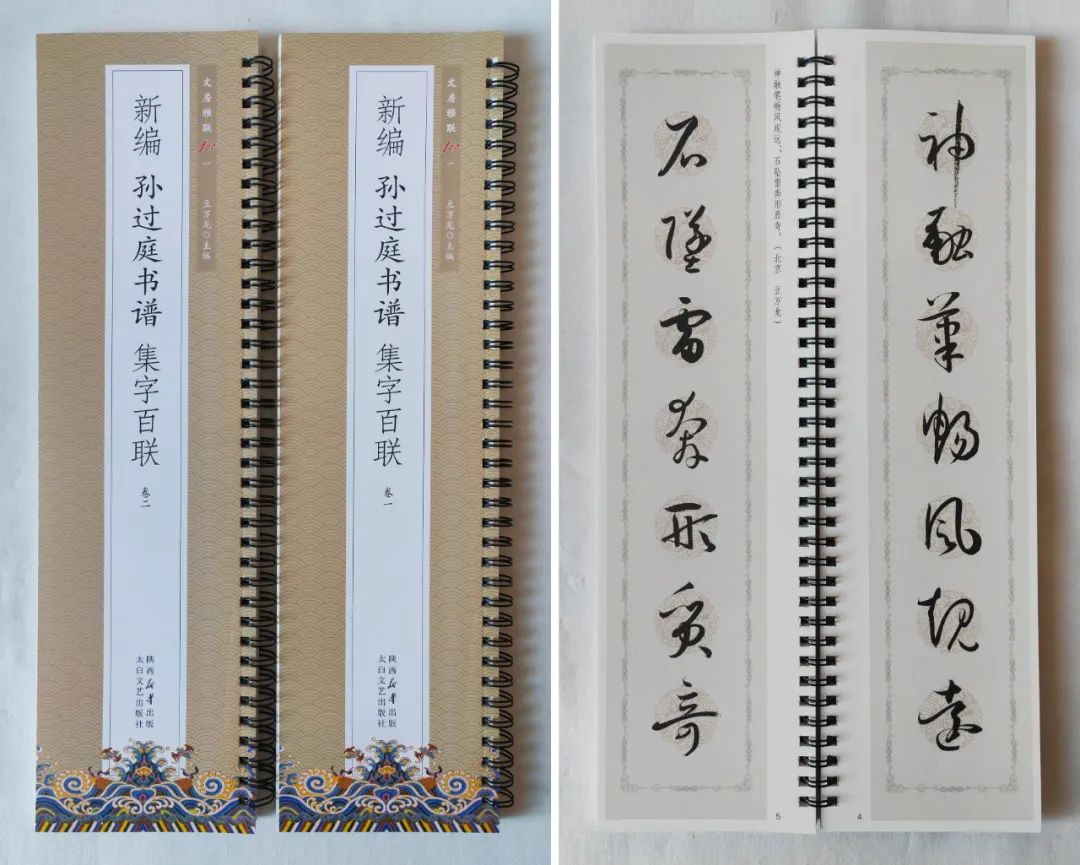 文房雅联100 一 豆万龙◎主编
新编 孙过庭书谱 集字百联
卷二
陕西新华出版
太白文艺出版社
文房雅联100 一 豆万龙◎主编
新编 孙过庭书谱 集字百联
卷一
陕西新华出版
太白文艺出版社
神融筆暢風規遠
4
神融笔畅风规远；石坠雷奔形质奇。（北京 豆万龙）
石墜雷奔形質奇
5